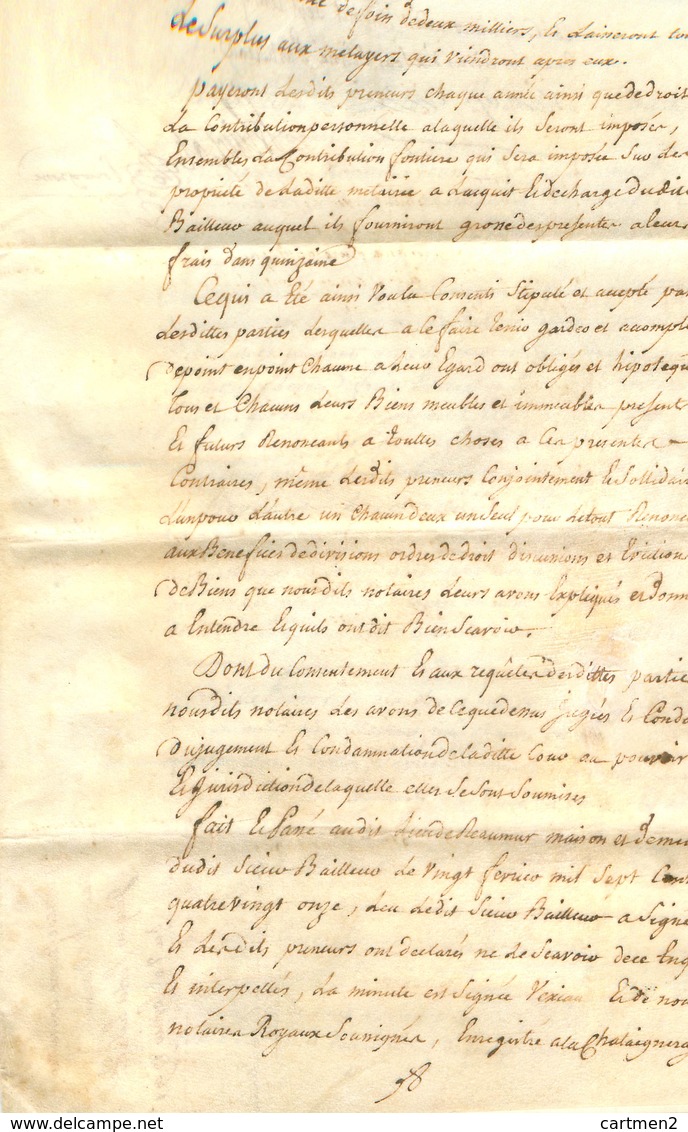 de foin de deux milliers, Et Laisseront
Le Surplus aux metayers qui viendront apres eux.
payeront Lesdits preneurs chaque année ainsi que de droit
La Contribution personnelle a laquelle ils Seront imposés,
Ensembles La Contribution fontiere qui Sera imposée Sur Les
propriété de Laditte metairie a Lacquit Et decharge dudit
Bailleur auquel ils fourniront grosse des presentes a leurs
frais dans quinzaine
Ce qui a Eté ainsi Voulu Consenti Stipulé et accepté par
Lesdittes parties Lesquelles a ce faire tenir garder et
de point en point Chacune a Leur Egard ont obligés et
tous et Chacuns Leurs Biens meubles et immeubles
Et futurs Renoncants a touttes choses a Ces presentes
Contraires, même Lesdits preneurs Conjointement Et
L'un pour L'autre un Chacun deux un Seul pour Le tout
aux Benefices de divisions ordres de droit discussions et Evictions
de Biens que nousdits notaires Leurs avons Expliqués et
a Entendre Et quils ont dit Bien Scavoir.
Dont du Consentement Et aux requêtes desdittes
nousdits notaires Les avons de Ce que dessus Jugés Et
Du jugement Et Condamnation de laditte Cour au pouvoir
Et Jurisdiction de laquelle elles Se Sont Soumises
fait Et Passé audit Lieu de Reaumur maison et
dudit Sieur Bailleur Le vingt fevrier mil Sept
quatre vingt onze, Leu Ledit Sieur Bailleur a Signé
Et Lesdits preneurs ont declarés ne Le Scavoir de ce
Et interpellés, La minute est Signée Vexiau Et de nous
notaires Royaux Soussignés, Enregistré a la
cartmen2